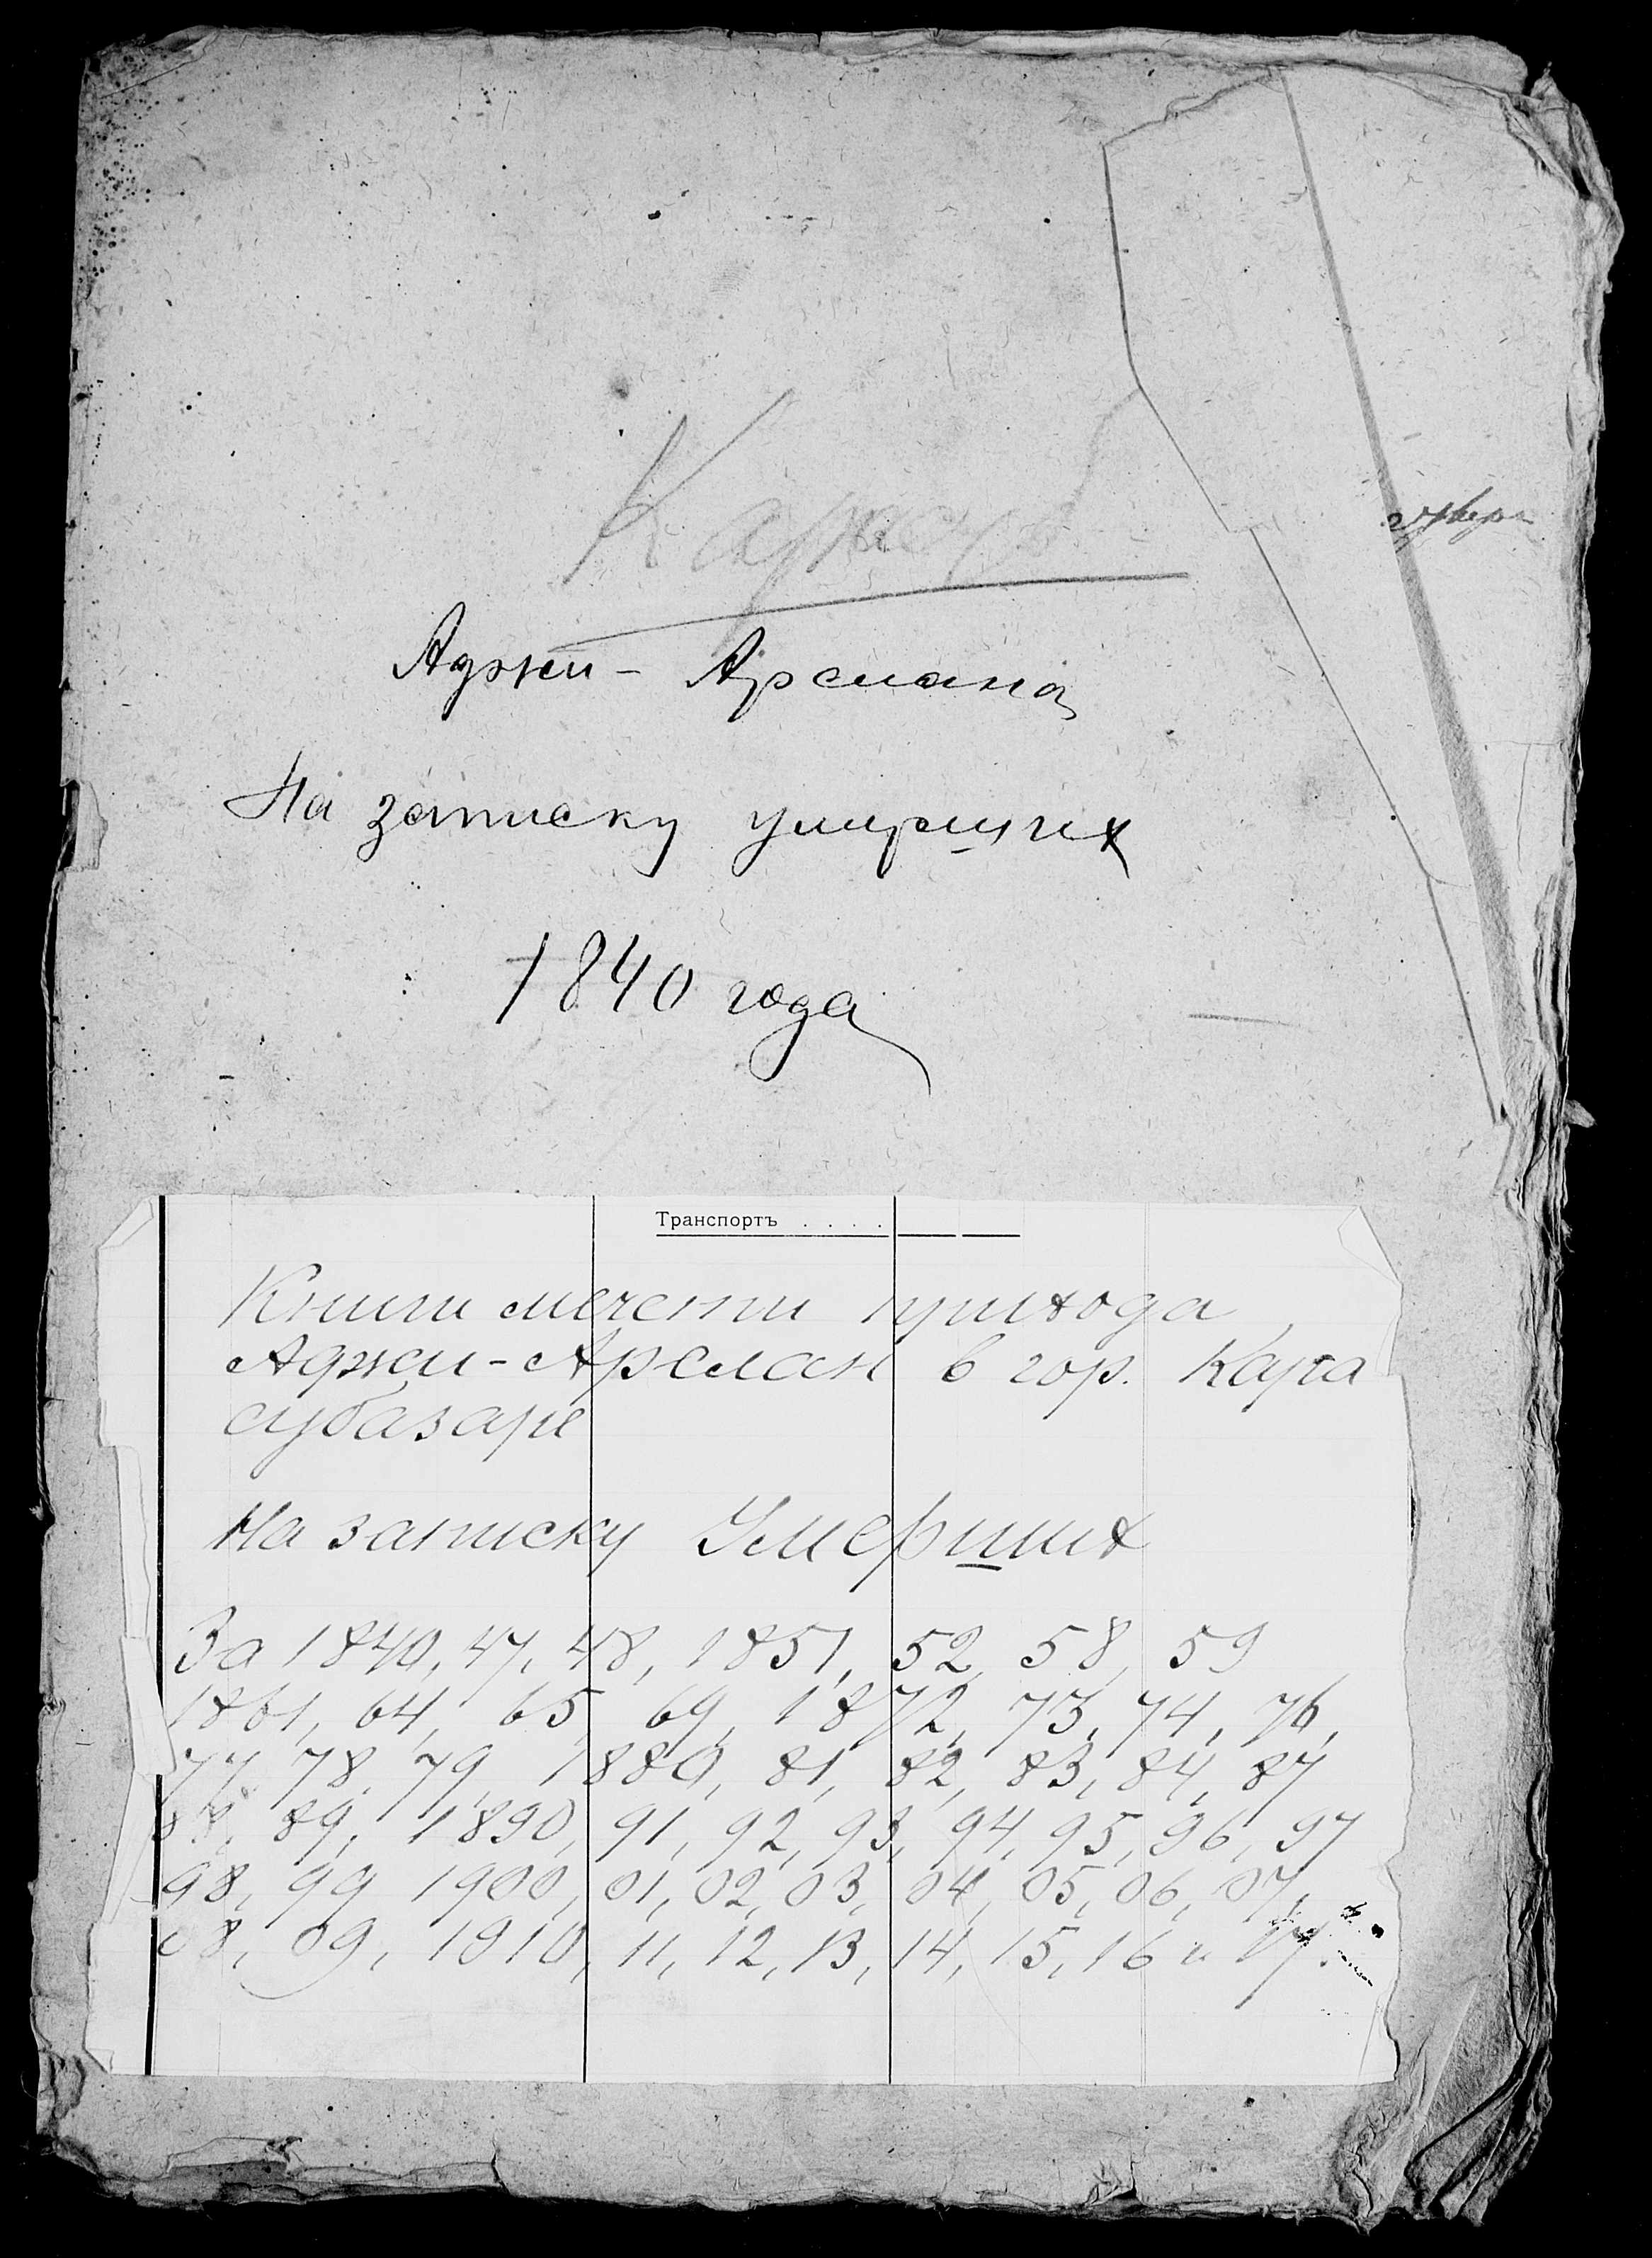 Аджи - Арслана
На записку умерших
1840 года
Транспортъ . . . .
Книги мечети прихода
Аджи-Арслан в гор. Кара
субазаре
На записку Умерших
За 1840, 47, 48, 1851, 52, 58, 59
1861, 64, 65, 69, 1872, 73, 74, 76,
77, 78, 79, 1880, 81, 82, 83, 84, 87
88, 89, 1890, 91, 92, 93, 94, 95, 96, 97
98, 99, 1900, 01, 02, 03, 04, 05, 06, 07,
08, 09, 1910, 11, 12, 13, 14, 15, 16 и 17.